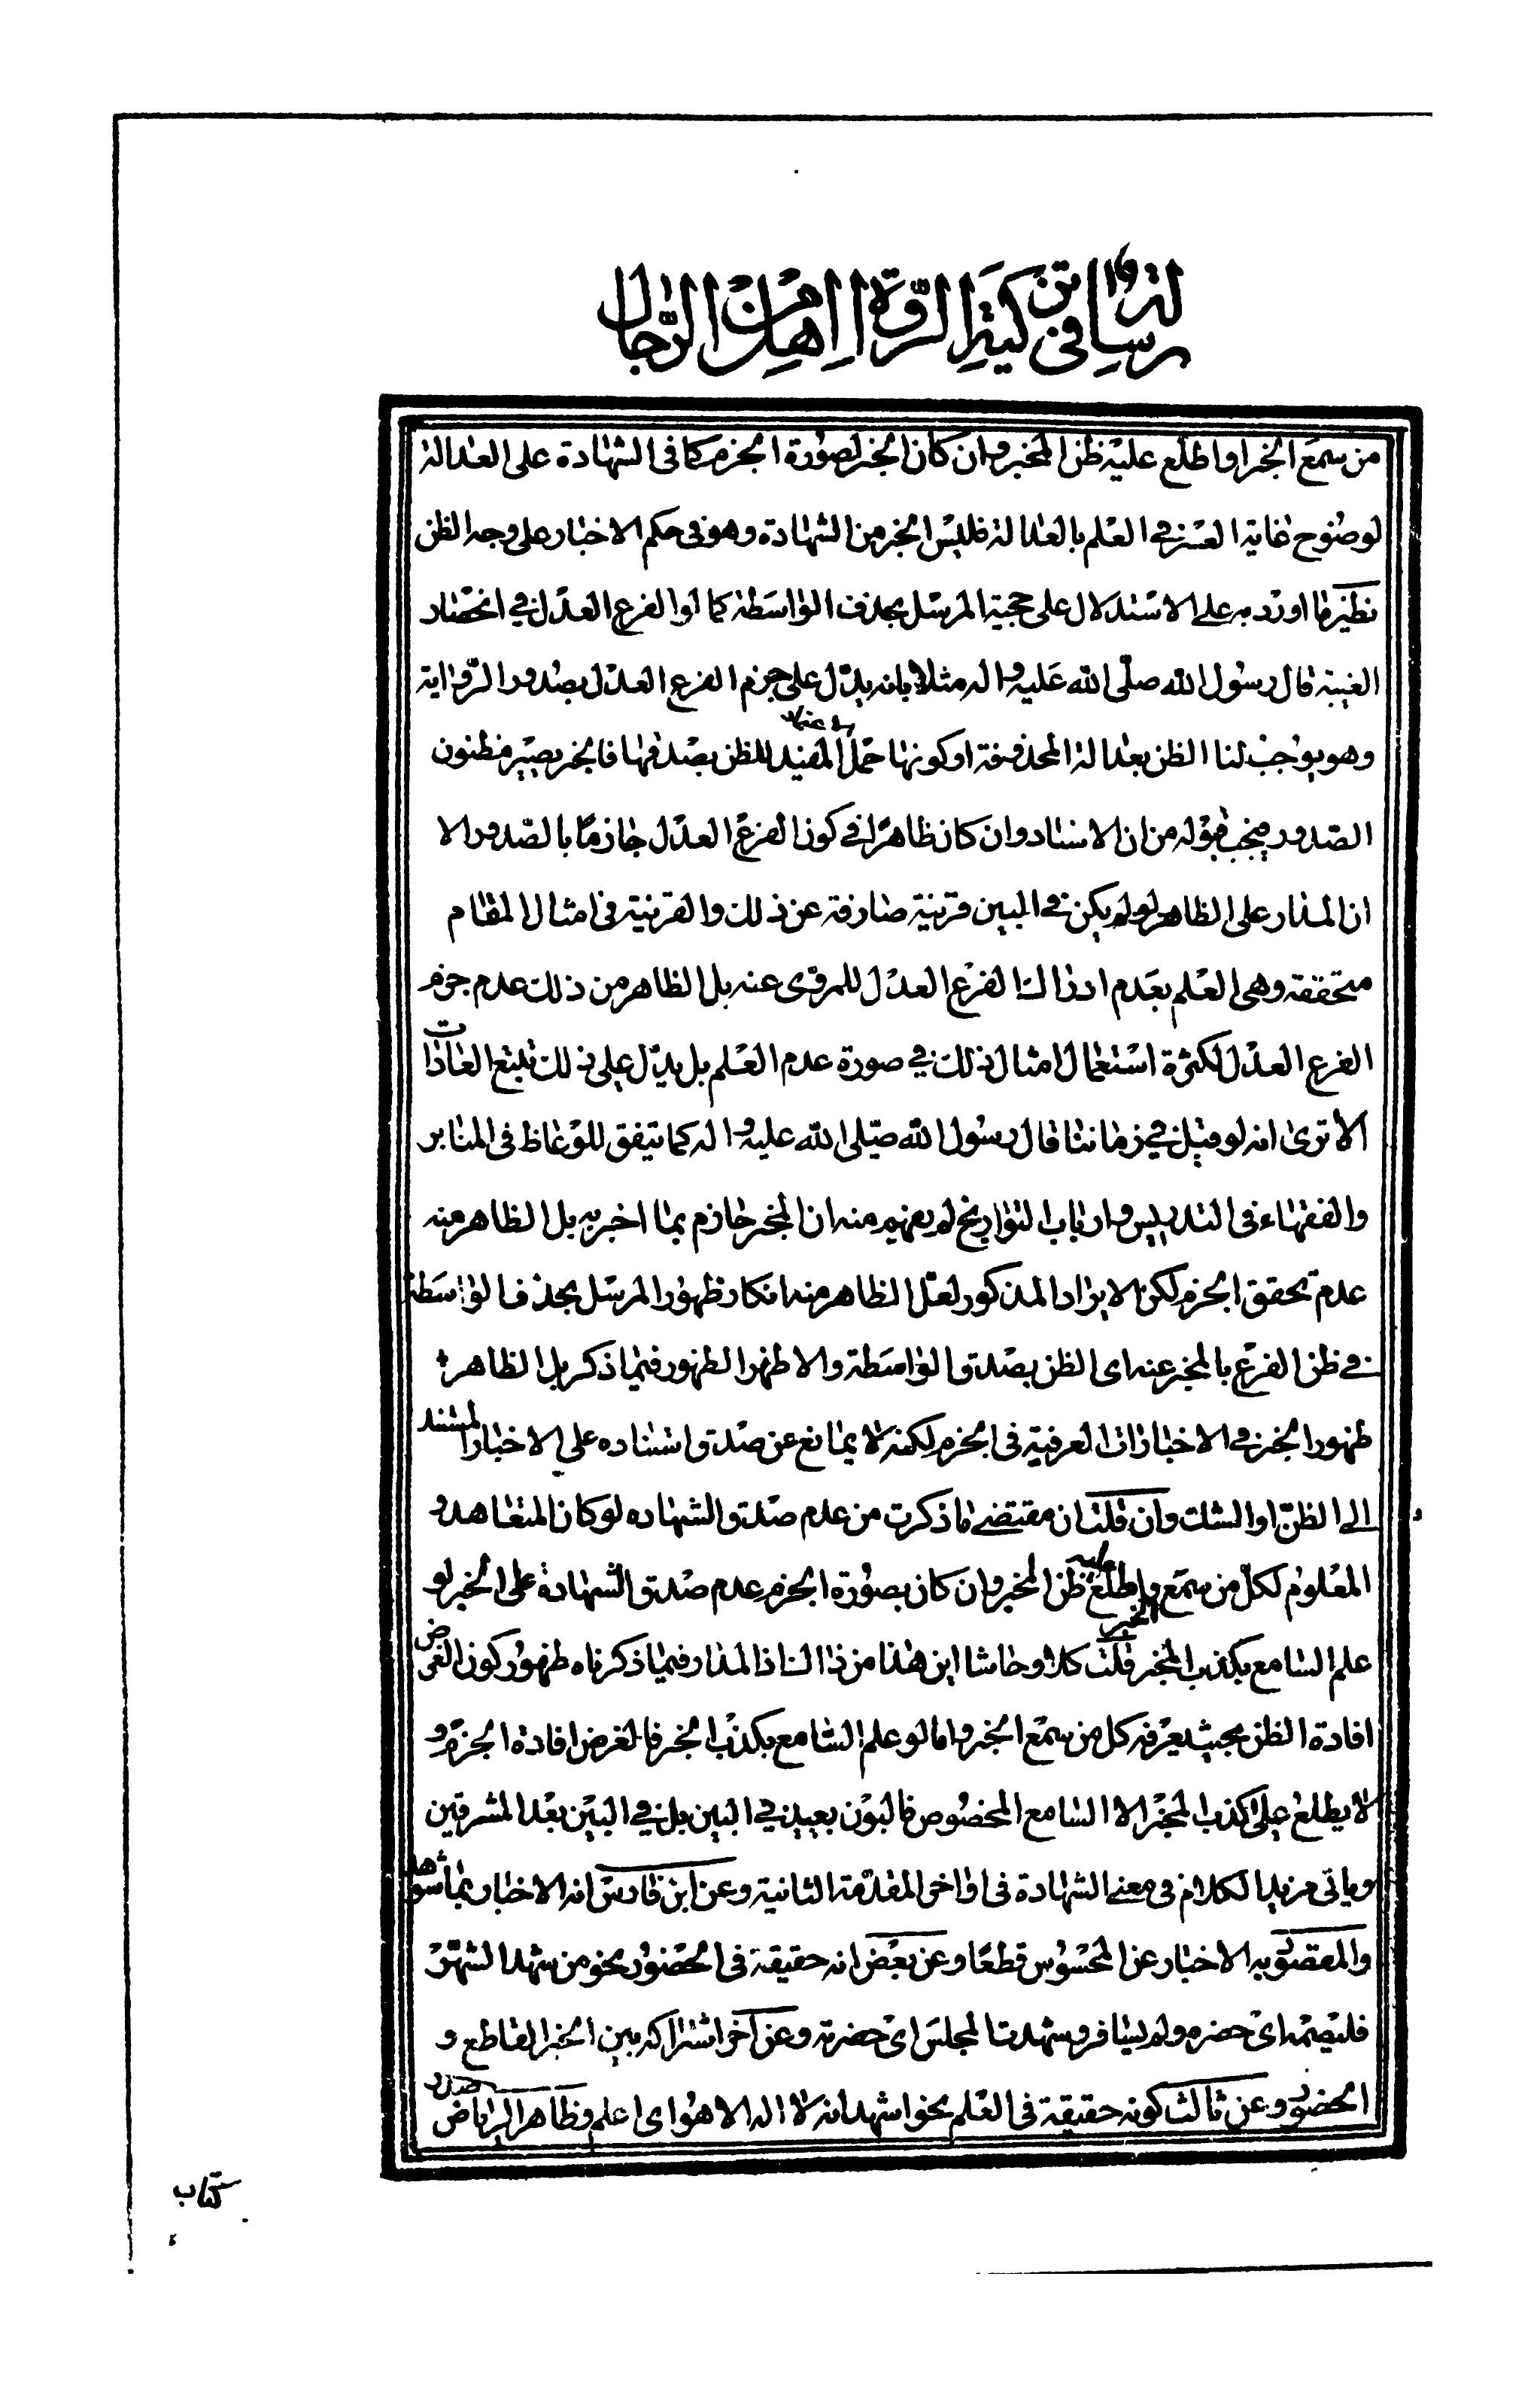 رسالة في تزكية الرواة من اهل الرجال
من سمع الخبر او اطلع عليه ظن المخبر وان كان الخبر بصورة الجزم كما في الشهادة على العدالة
لوضوح غاية العسر في العلم بالعدالة فليس الخبر من الشهادة وهو في حكم الاخبار على وجه الظن
نظير ما اورد به على الاستدلال على حجية المرسل بحذف الواسطة كما لو الفرع العدل في انحضار
الغيبة قال رسول الله صلى الله عليه واله مثلا بانه يدل على جزم الفرع العدل بصدور الرواية
وهو يوجب لنا الظن بعدالة المحذوفة او كونها حمل المفيد للظن بصدقها فالخبر يصير مظنون
الصدور فيجب قبوله من ان الاسناد وان كان ظاهرا في كون الفرع العدل جازما بالصدور الا
ان المدار على الظاهر لو لم يكن في البين قرينة صارفة عن ذلك والقرينة في امثال المقام
متحققة وهي العلم بعدم ادراك الفرع العدل للمروى عنه بل الظاهر من ذلك عدم جزم
الفرع العدل لكثرة استعمال امثال ذلك في صورة عدم العلم بل يدل على ذلك تتبع العادات
الا ترى انه لو قيل في زماننا قال رسول الله صلى الله عليه واله كما يتفق للوعاظ في المنابر
والفقهاء في التدريس وارباب التواريخ لم يفهم منه ان المخبر جازم بما اخبر به بل الظاهر منه
عدم تحقق الجزم لكن الايراد المذكور لعل الظاهر منه انكار ظهور المرسل بحذف الواسطة
في ظن الفرع بالمخبر عنه اى الظن بصدق الواسطة والاظهر الظهور فيما ذكر بل الظاهر
ظهور الخبر في الاخبارات العرفية في الجزم لكنه لا يمانع عن صدق استناده على الاخبار المستند
الى الظن او الشك وان قلت ان مقتضى ما ذكرت من عدم صدق الشهاده لو كان المتعاهد و
المعلوم لكل من سمع الخبر واطلع عليه ظن المخبر وان كان بصورة الجزم عدم صدق الشهادة على الخبر لو
علم السامع بكذب المخبر قلت كلا وحاشا اين هذا من ذاك اذ المدار فيما ذكرناه ظهور كون الغرض
افادة الظن بحيث يعرفه كل من سمع الخبر واما لو علم السامع بكذب الخبر فالغرض افادة الجزم و
لا يطلع على كذب المخبر الا السامع المخصوص فالبون بعيد في البين بل في البين بعد المشرقين
وياتى مزيد الكلام في معنى الشهادة في اواخر المقدمة الثانية وعن ابن فارس انه الاخبار بما شوهد
والمقصود به الاخبار عن المحسوس قطعا وعن بعض انه حقيقة في الحضور نحو من شهد الشهر
فليصمه اى حضره ولم يسافر وشهدت المجلس اى حضرته وعن اخر اشتراكه بين الخبر القاطع و
الحضور وعن ثالث كونه حقيقة في العلم نحو اشهد انه لا اله الا هو اى اعلم وظاهر الرياض صدر
كتاب